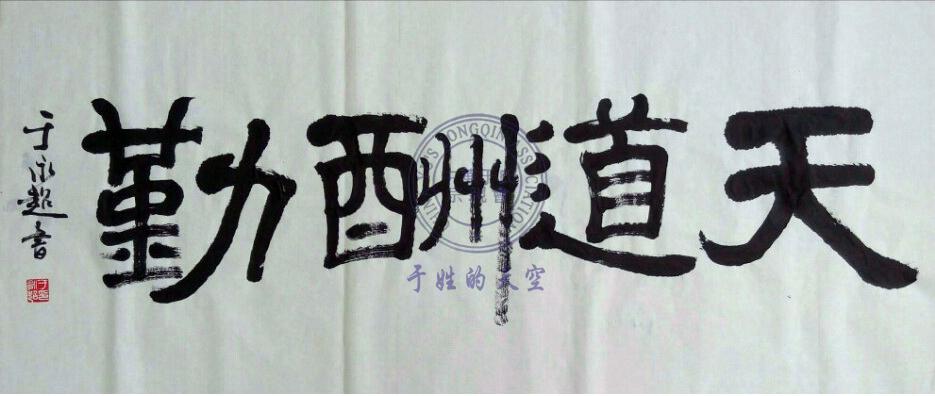 天道酬勤
于永超書
于姓的天空